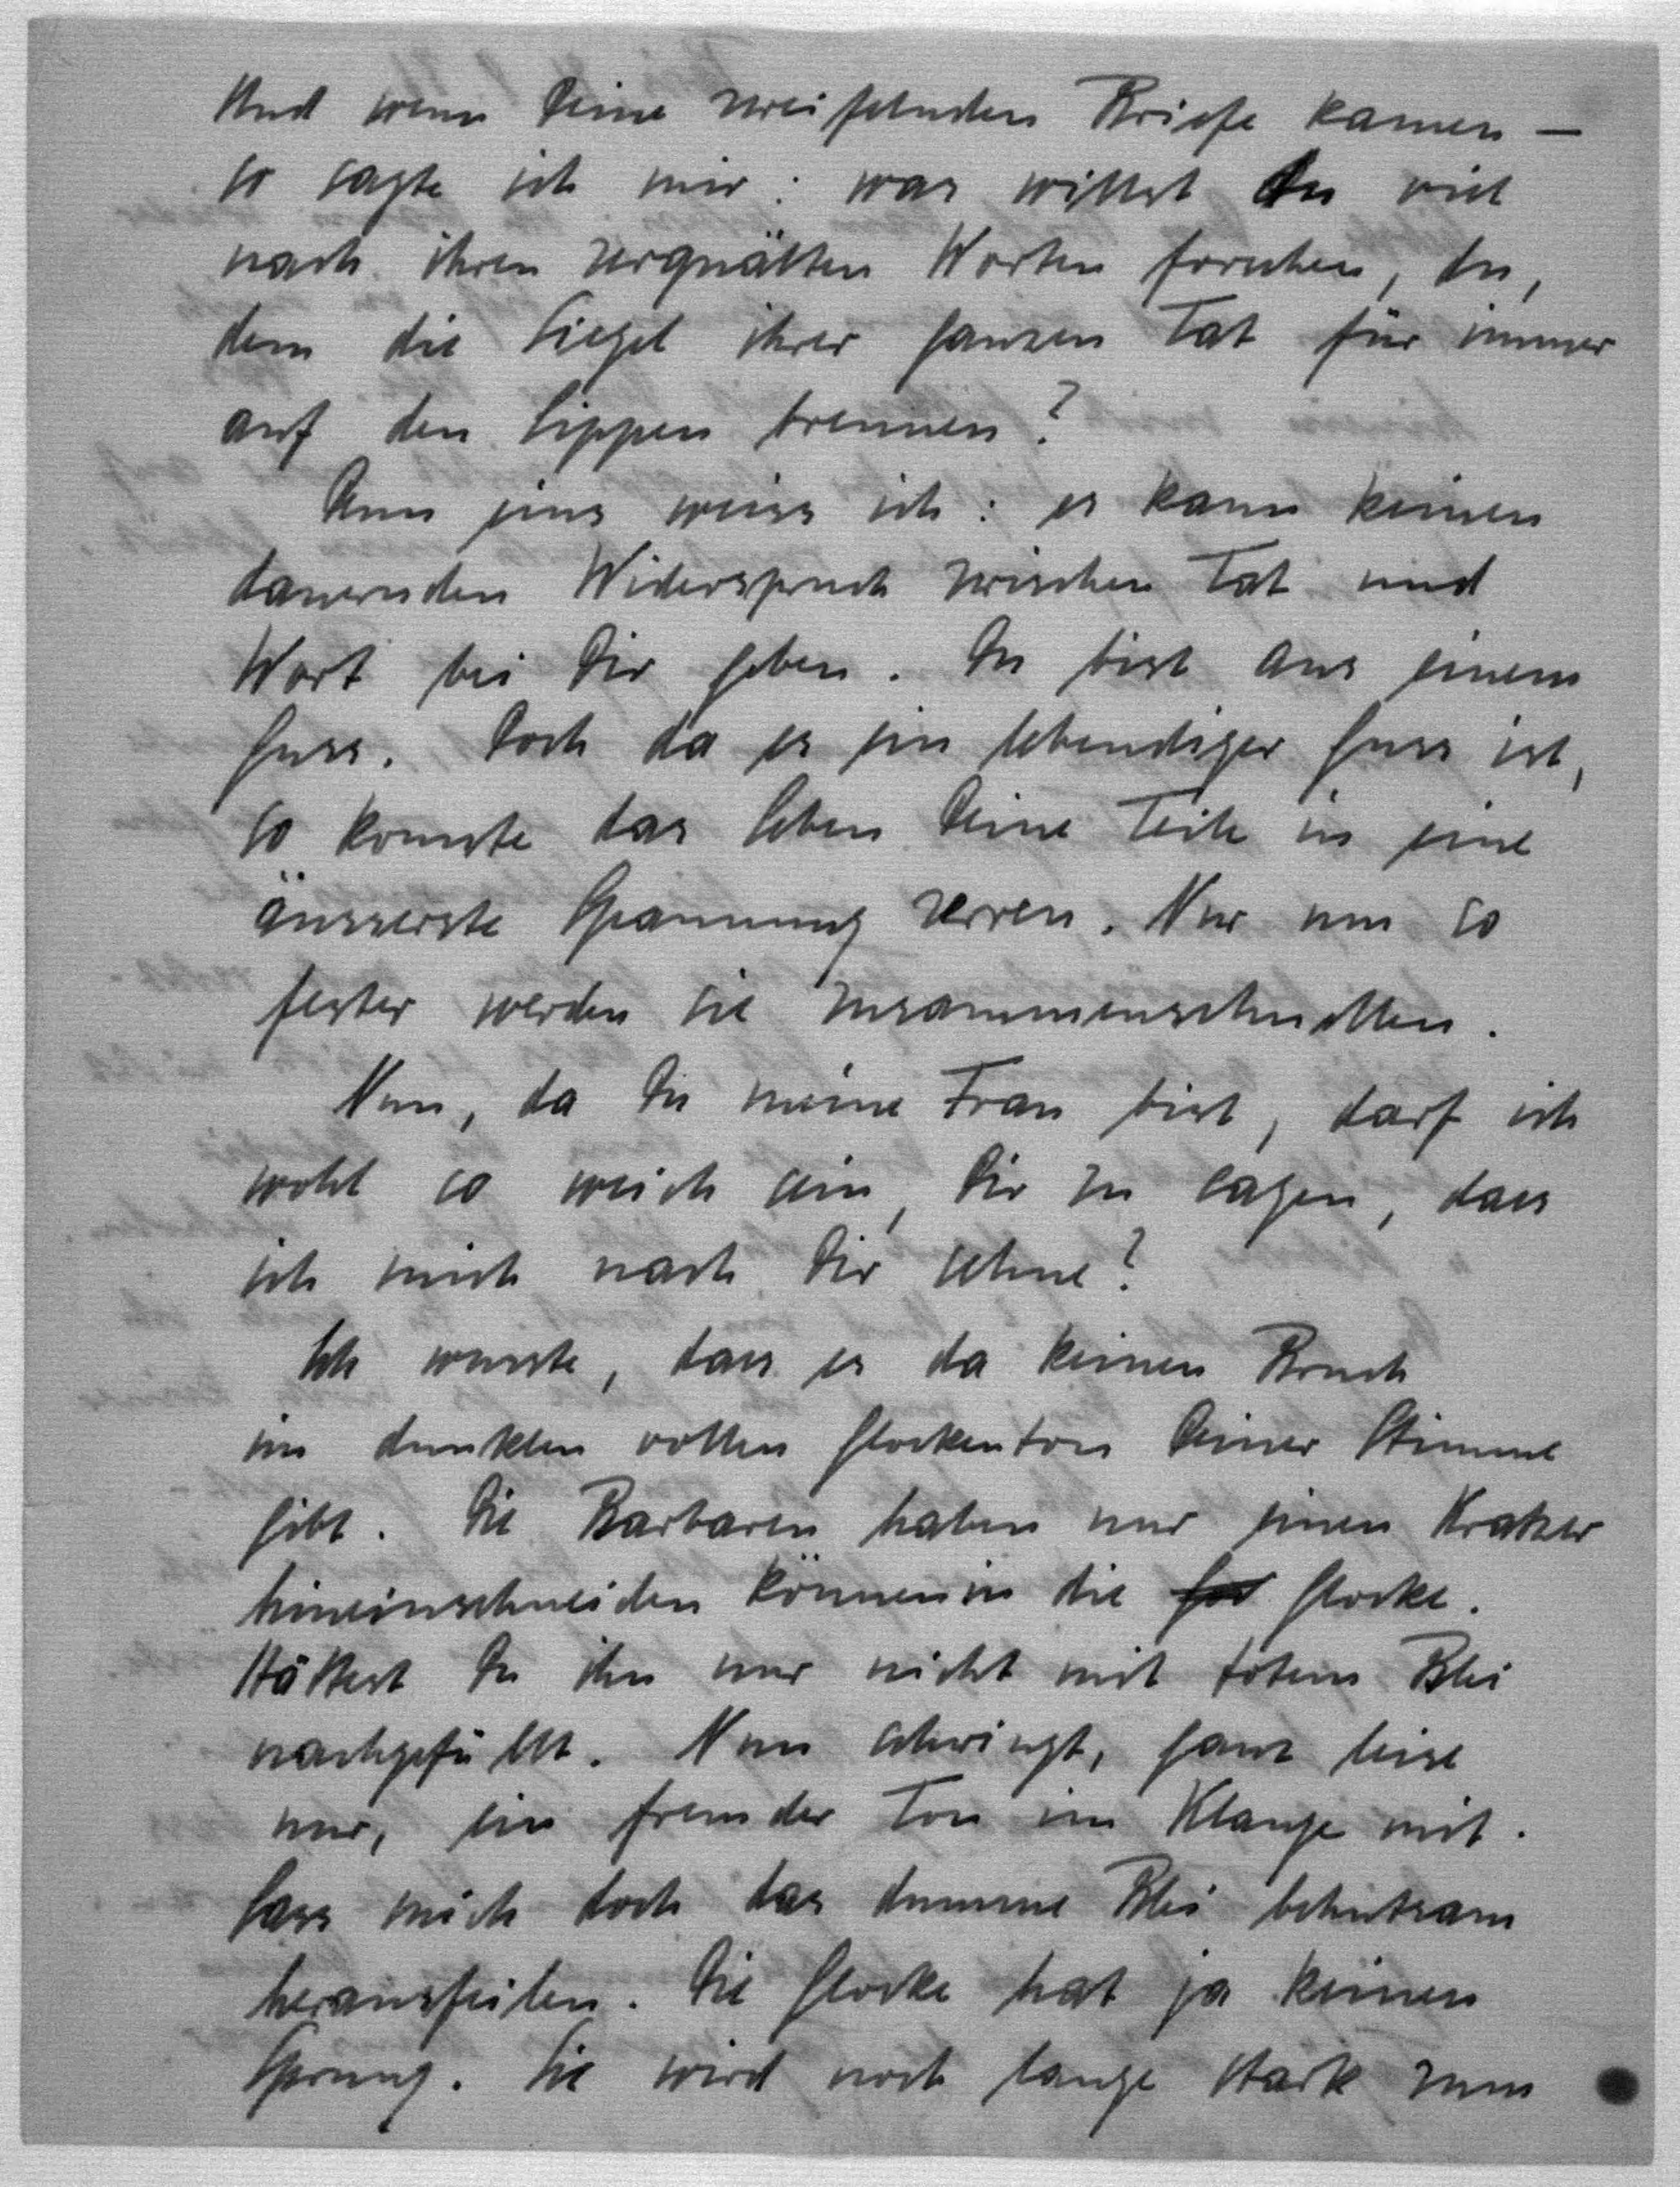 Und wenn Deine zweifelnden Briefe kamen —
so sagte ich mir: was willst Du viel
nach ihren zerquälten Worten forschen, du,
dem die Siegel ihrer ganzen Tat für immer
auf den Lippen brennen?
Denn eins weiss ich: es kann keinen
dauernden Widerspruch zwischen Tat und
Wort bei Dir geben. Du bist aus einem
Guss. Doch da es ein lebendiger Guss ist,
so konnte das Leben Deine Teile in eine
äusserste Spannung zerren. Nur um so
fester werden sie zusammenschnellen.
Nun, da Du meine Frau bist, darf ich
wohl so weich sein, Dir zu sagen, dass
ich mich nach Dir sehne?
Ich wusste, dass es da keinen Bruch
im dunklen vollen Glockenton Deiner Stimme
gibt. Die Barbaren haben nur einen Kratzer
hineinschneiden können in die Glocke.
Hättest Du ihn nur nicht mit totem Blei
nachgefüllt. Nun schwingt, ganz leise
nur, ein fremder Ton im Klange mit.
Lass mich doch das dumme Blei behutsam
herausfeilen. Die Glocke hat ja keinen
Sprung. Sie wird noch lange stark zum